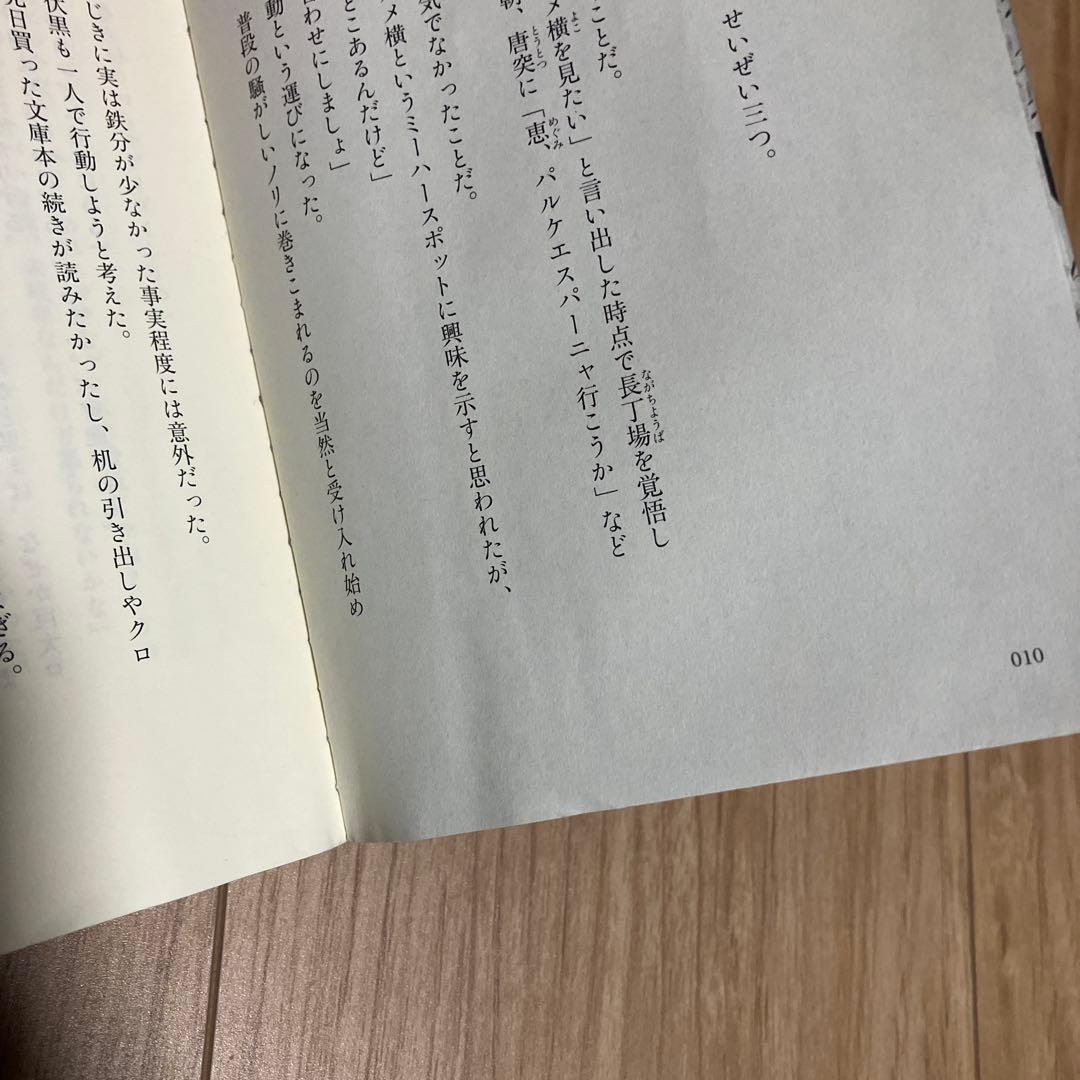 せいぜい三つ。
ことだ。
メ横を見たい」と言い出した時点で長丁場を覚悟し
朝、唐突に「恵、パルケエスパーニャ行こうか」など
気でなかったことだ。
メ横というミーハースポットに興味を示すと思われたが、
とこあるんだけど」
合わせにしましょ」
動という運びになった。
普段の騒がしいノリに巻きこまれるのを当然と受け入れ始め
010
じきに実は鉄分が少なかった事実程度には意外だった。
伏黒も一人で行動しようと考えた。
先日買った文庫本の続きが読みたかったし、机の引き出しやクロ
ぎる。